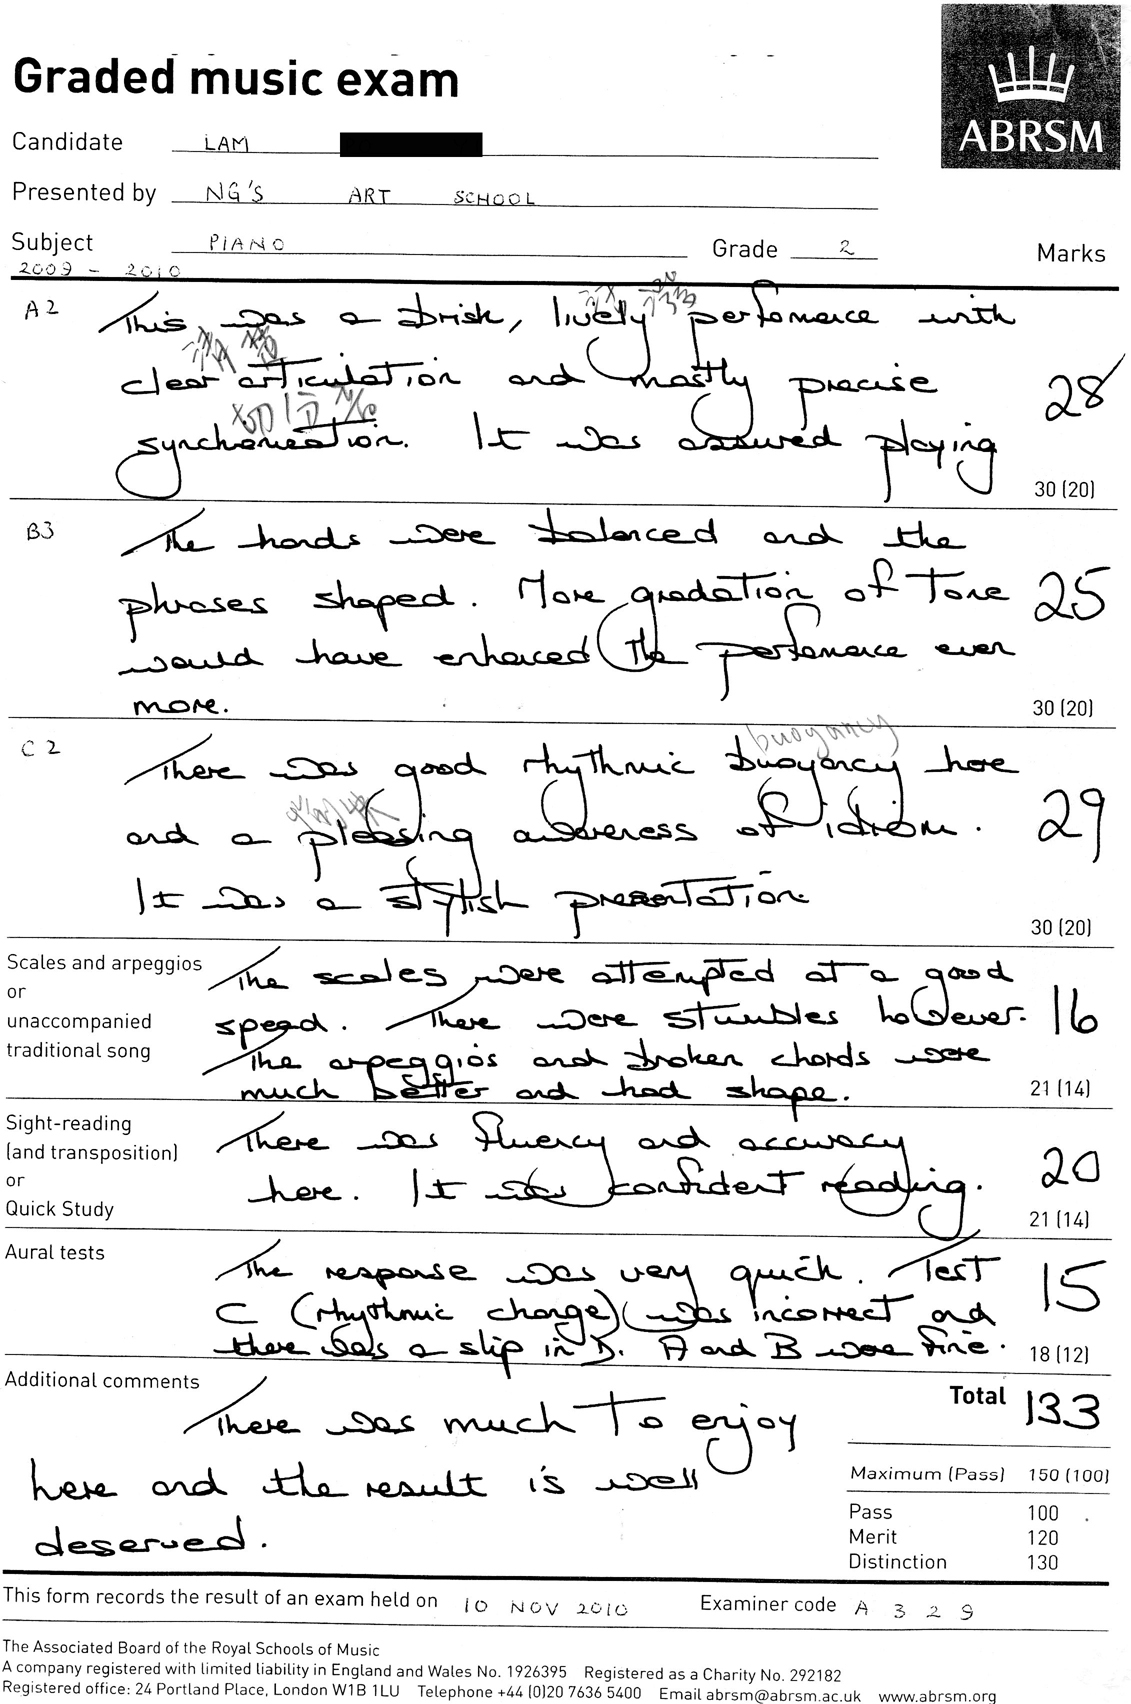 Graded music exam
ABRSM
Candidate LAM
Presented by NG'S ART SCHOOL
Subject PIANO Grade 2 Marks
2009 - 2010
A2 This was a brisk, lively performance with
clear articulation and mostly precise 28
synchronisation. It was assured playing
30 (20)
B3 The hands were balanced and the
phrases shaped. More gradation of tone 25
would have enhanced the performance even
more. 30 (20)
buoyancy
C2 There was good rhythmic buoyancy here
and a pleasing awareness of idiom. 29
It was a stylish presentation.
30 (20)
Scales and arpeggios The scales were attempted at a good
or
unaccompanied speed. There were stumbles however. 16
traditional song The arpeggios and broken chords were
much better and had shape. 21 (14)
Sight-reading There was fluency and accuracy
(and transposition)
or here. It was confident reading. 20
Quick Study 21 (14)
Aural tests The response was very quick. Test 15
C (rhythmic change) was incorrect and
there was a slip in D. A and B were fine. 18 (12)
Additional comments Total 133
There was much to enjoy
here and the result is well
deserved.
Maximum (Pass) 150 (100)
Pass 100
Merit 120
Distinction 130
This form records the result of an exam held on 10 NOV 2010 Examiner code A 3 2 9
The Associated Board of the Royal Schools of Music
A company registered with limited liability in England and Wales No. 1926395 Registered as a Charity No. 292182
Registered office: 24 Portland Place, London W1B 1LU Telephone +44 (0)20 7636 5400 Email abrsm@abrsm.ac.uk www.abrsm.org